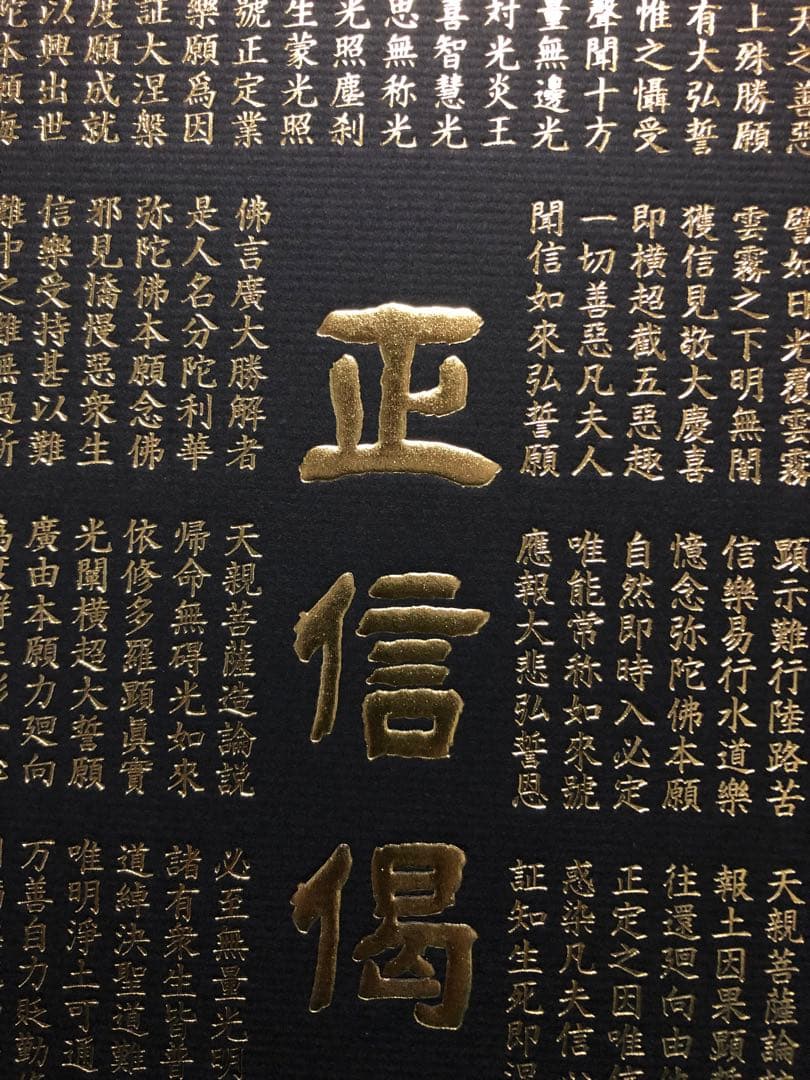 天之善惡
上殊勝願
有大弘誓
惟之攝受
聲聞十方
量無邊光
対光炎王
喜智慧光
思無称光
光照塵刹
生蒙光照
號正定業
樂願為因
証大涅槃
度願成就
以興出世
陀本願海
譬如日光覆雲霧
雲霧之下明無闇
獲信見敬大慶喜
即橫超截五惡趣
一切善惡凡夫人
聞信如來弘誓願
正信偈
佛言廣大勝解者
是人名分陀利華
弥陀佛本願念佛
邪見憍慢惡衆生
信樂受持甚以難
難中之難無過斯
顕示難行陸路苦
信樂易行水道樂
憶念弥陀佛本願
自然即時入必定
唯能常称如來號
應報大悲弘誓恩
天親菩薩造論説
帰命無碍光如來
依修多羅顕眞實
光闡橫超大誓願
廣由本願力廻向
天親菩薩論
報土因果顕誓
往還廻向由他
正定之因唯信
惑染凡夫信
証知生死即涅
必至無量光明
諸有衆生皆普
道綽決聖道難
唯明淨土可通
万善自力貶勤